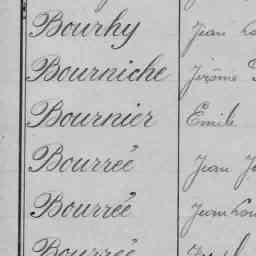 Bourhy Jean
Bourniche Jérôme
Bournier Emile
Bourreé Jean
Bourrée Jean Lou
Bourrée